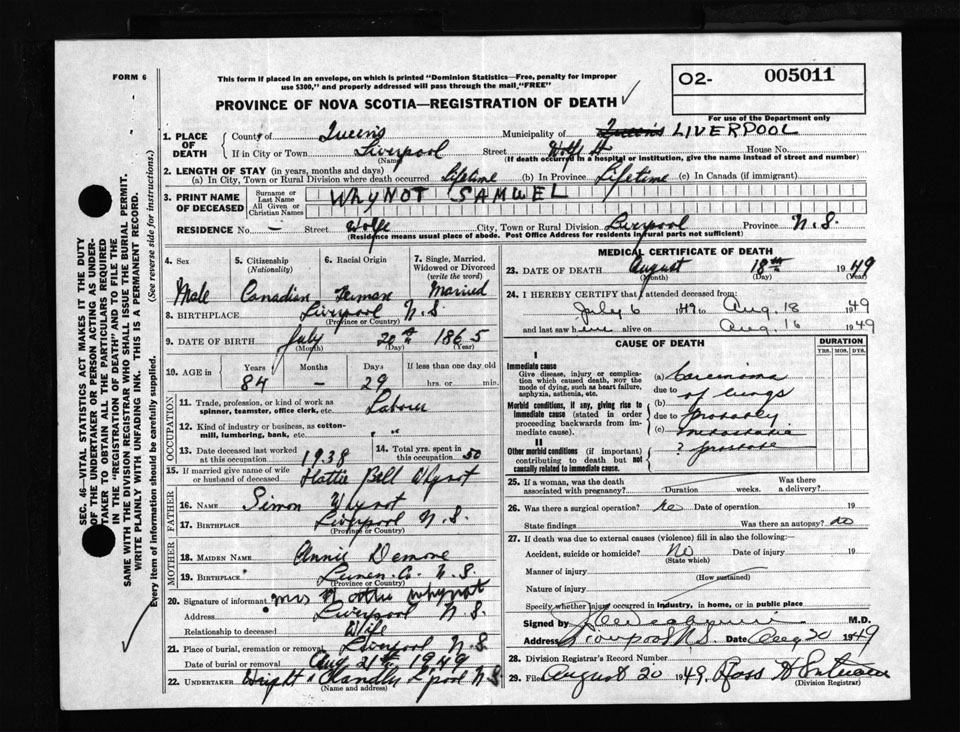 FORM 6
This form if placed in an envelope, on which is printed "Dominion Statistics—Free, penalty for improper
use $300," and properly addressed will pass through the mail, "FREE"
PROVINCE OF NOVA SCOTIA—REGISTRATION OF DEATH
O2- 005011
For use of the Department only
1. PLACE OF DEATH
County of Queens Municipality of Queens LIVERPOOL
If in City or Town Liverpool Street Wolfe St House No.
(Name) (If death occurred in a hospital or institution, give the name instead of street and number)
2. LENGTH OF STAY (in years, months and days)
(a) In City, Town or Rural Division where death occurred Lifetime (b) In Province Lifetime (c) In Canada (if immigrant)
3. PRINT NAME OF DECEASED
Surname or Last Name
All Given or Christian Names
WhyNOT SAMUEL
RESIDENCE No. — Street Wolfe City, Town or Rural Division Liverpool Province N.S.
(Residence means usual place of abode. Post Office Address for residents in rural parts not sufficient)
4. Sex
Male
5. Citizenship
(Nationality)
Canadian
6. Racial Origin
German
7. Single, Married, Widowed or Divorced
(write the word)
Married
8. BIRTHPLACE Liverpool N.S
(Province or Country)
9. DATE OF BIRTH July 20th 1865
(Month) (Day) (Year)
10. AGE in
Years Months Days If less than one day old
84 — 29 hrs. or min.
OCCUPATION
11. Trade, profession, or kind of work as
spinner, teamster, office clerk, etc. Labourer
12. Kind of industry or business, as cotton-
mill, lumbering, bank, etc. " "
13. Date deceased last worked
at this occupation 1938
14. Total yrs. spent in
this occupation 50
15. If married give name of wife
or husband of deceased Hattie Bell Whynot
FATHER
16. NAME Simon Whynot
17. BIRTHPLACE Liverpool N.S.
(Province or Country)
MOTHER
18. MAIDEN NAME Annie Demone
19. BIRTHPLACE Lunen. Co. N.S.
(Province or Country)
20. Signature of informant Mrs Hattie Whynot
Address Liverpool N.S.
Relationship to deceased Wife
21. Place of burial, cremation or removal Liverpool N.S.
Date of burial or removal Aug 21st 1949
22. UNDERTAKER Wright & Chandler L'pool N.S.
(Name and address)
MEDICAL CERTIFICATE OF DEATH
23. DATE OF DEATH August 18th 1949
(Month) (Day) (Year)
24. I HEREBY CERTIFY that I attended deceased from:
July 6 1949 to Aug. 18 1949
and last saw him alive on Aug. 16 1949
CAUSE OF DEATH
DURATION
YRS. MOS. DYS.
I
Immediate cause
Give disease, injury or complica-
tion which caused death, not the
mode of dying, such as heart failure,
asphyxia, asthenia, etc.
Morbid conditions, if any, giving rise to
immediate cause (stated in order
proceeding backwards from im-
mediate cause).
II
Other morbid conditions (if important)
contributing to death but not
causally related to immediate cause.
(a) Carcinoma
due to of lungs
(b)
due to probably
(c) metastatic
? prostate
25. If a woman, was the death
associated with pregnancy? Duration weeks.
Was there
a delivery?
26. Was there a surgical operation? no Date of operation 19
State findings Was there an autopsy? no
27. If death was due to external causes (violence) fill in also the following:
Accident, suicide or homicide? No Date of injury 19
(State which)
Manner of injury
(How sustained)
Nature of injury
Specify whether injury occurred in industry, in home, or in public place
Signed by M.D.
Address Liverpool N.S. Date Aug 20 1949
28. Division Registrar's Record Number
29. Filed August 20 1949 Ross
(Division Registrar)
SEC. 46—VITAL STATISTICS ACT MAKES IT THE DUTY
OF THE UNDERTAKER OR PERSON ACTING AS UNDER-
TAKER TO OBTAIN ALL THE PARTICULARS REQUIRED
IN THE "REGISTRATION OF DEATH" AND TO FILE THE
SAME WITH THE DIVISION REGISTRAR WHO SHALL ISSUE THE BURIAL PERMIT.
WRITE PLAINLY WITH UNFADING INK. THIS IS A PERMANENT RECORD.
Every item of information should be carefully supplied. (See reverse side for instructions.)